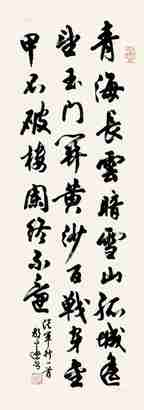 青海長雲暗雪山孤城遙
望玉門關黃沙百戰穿金
甲不破樓蘭終不還
從軍行一首